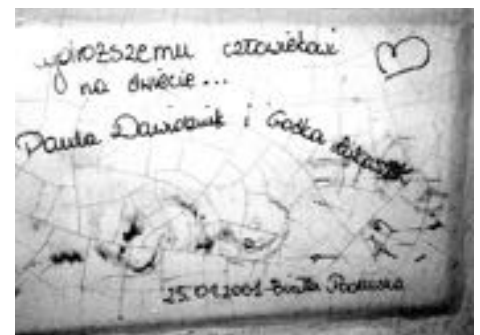 człowiekowi
na świecie...
Paula Dawidziuk i Gośka
25.01.2001 - Biała Podlaska